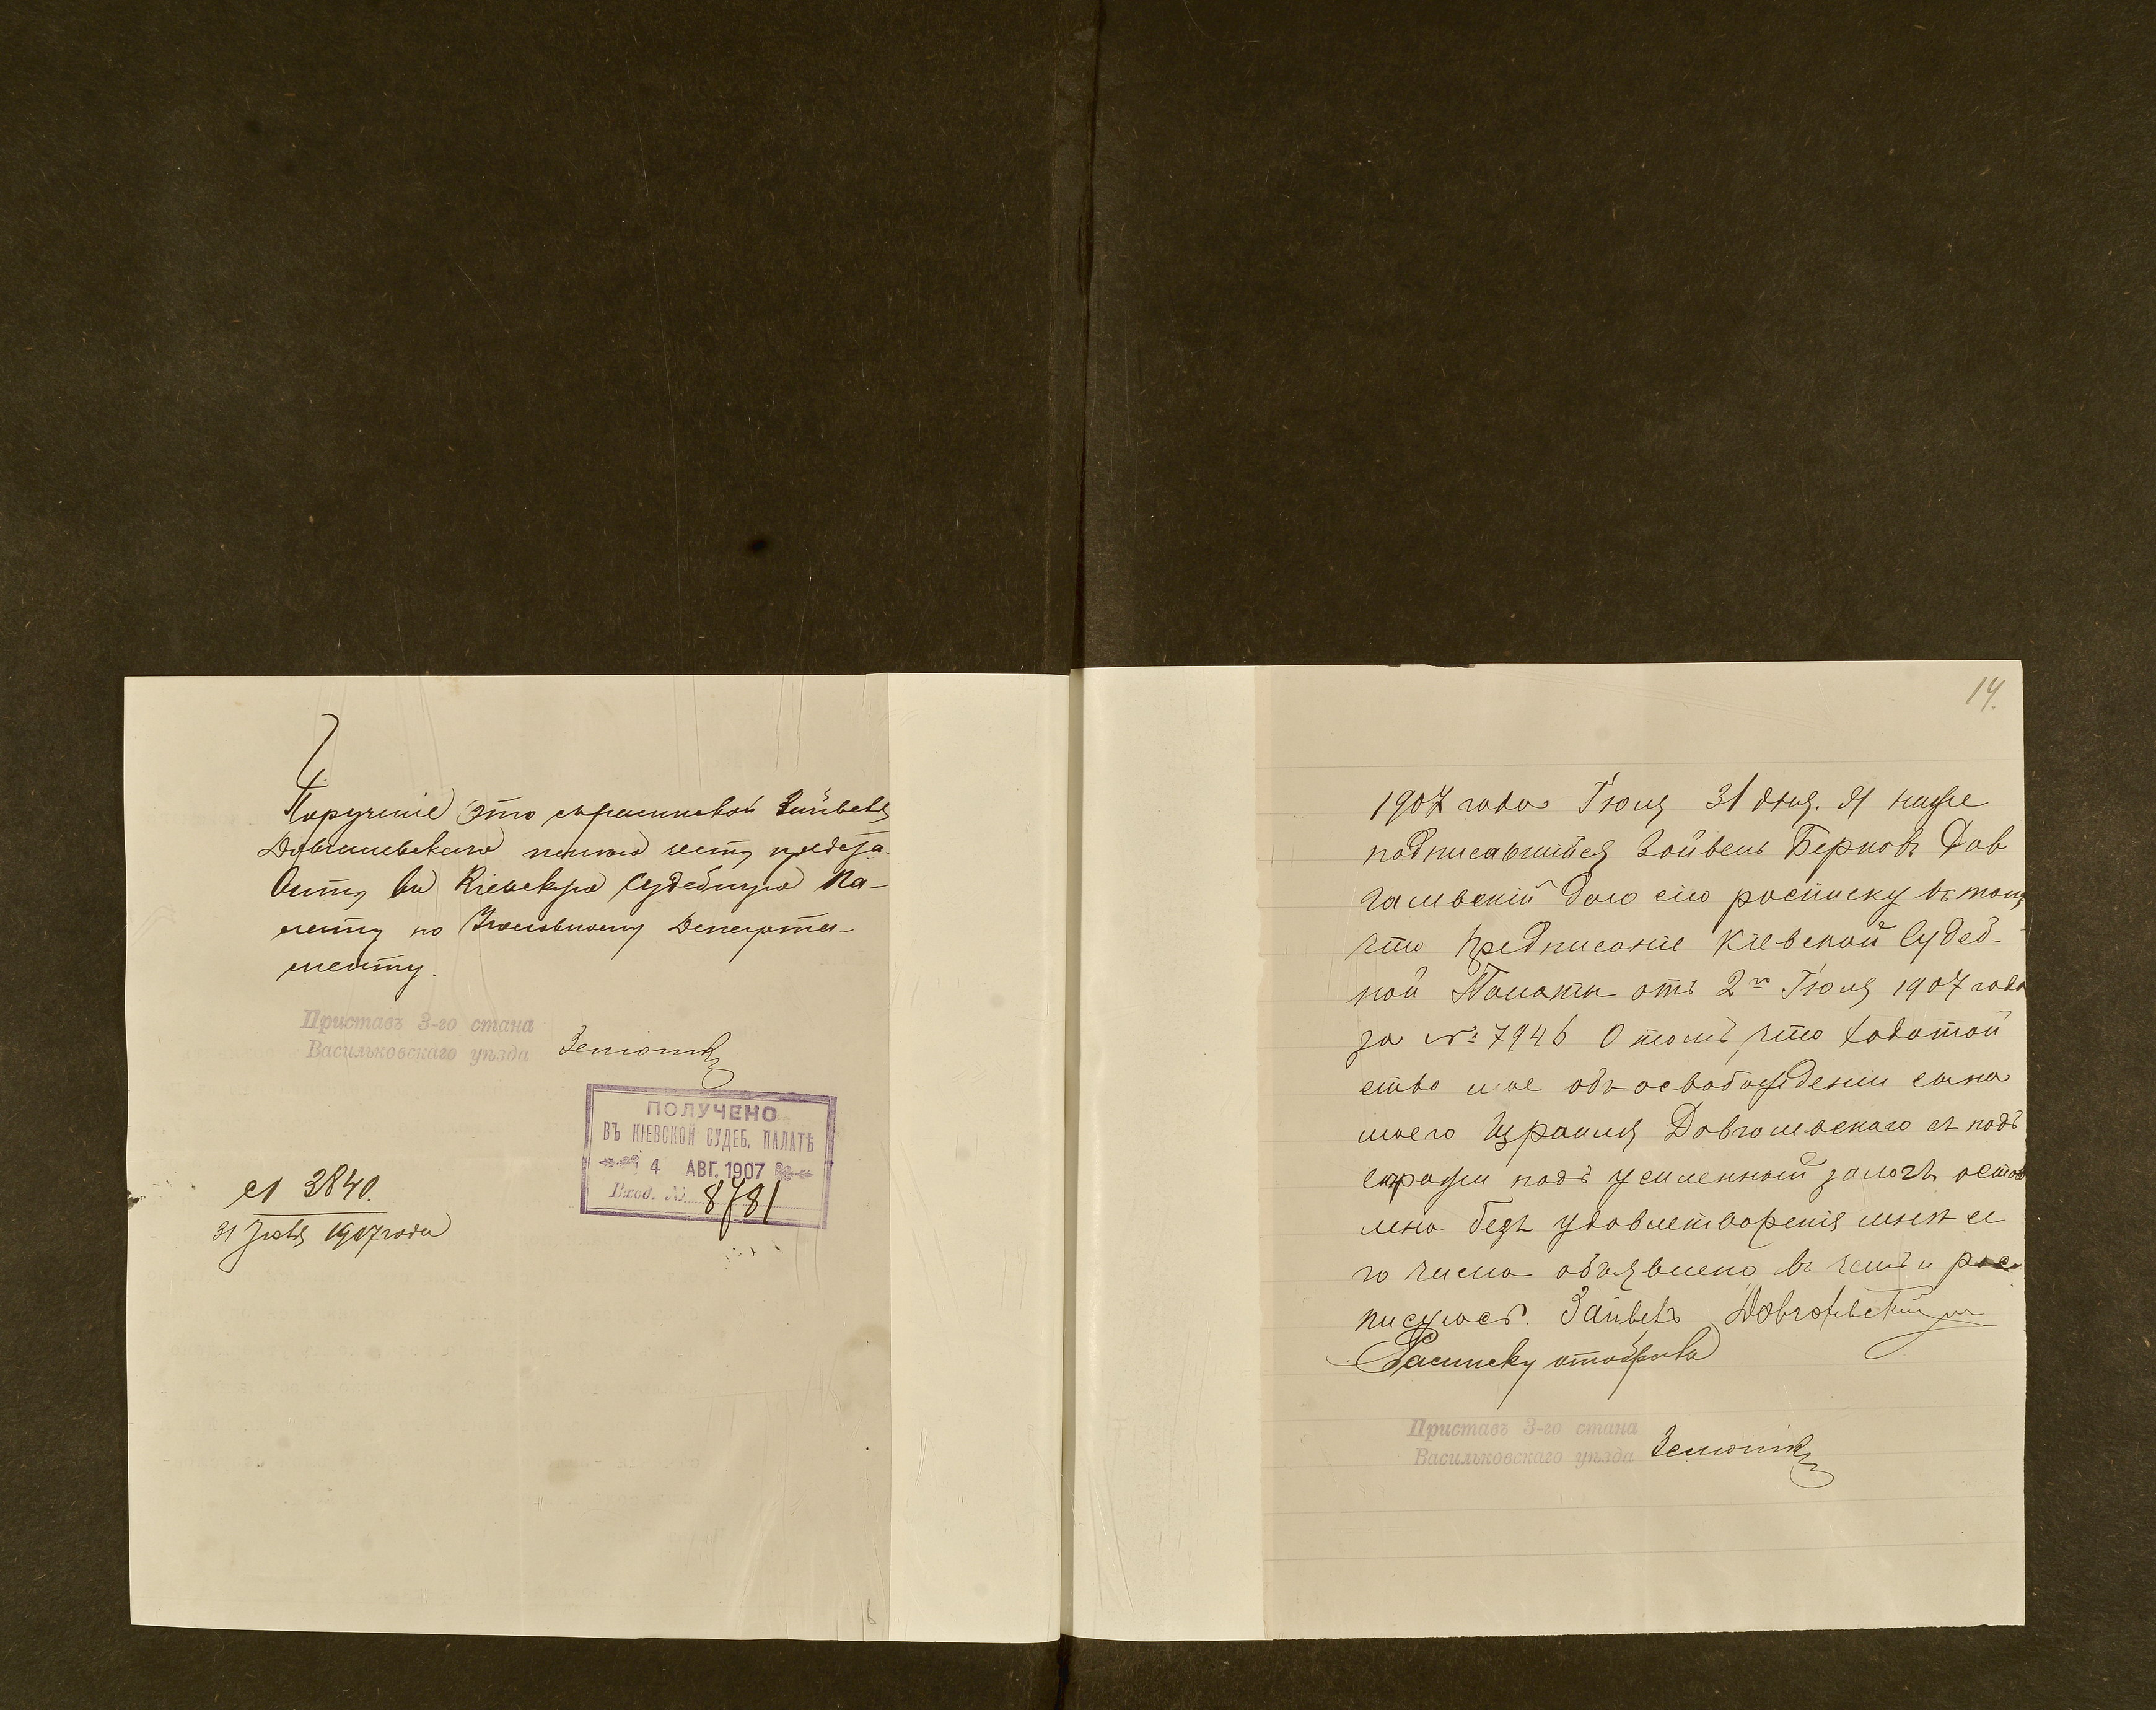 Порученіе это съ роспиской Зайвеля
Довгалевскаго имѣю честь предста-
вить въ Кіевскую Судебную Па-
лату по Уголовному Департа-
менту.
Приставъ 3-го стана
Васильковскаго уѣзда
ПОЛУЧЕНО
ВЪ КІЕВСКОЙ СУДЕБ. ПАЛАТѢ
4 АВГ. 1907
Вход. № 8781
№ 3840.
31 Іюля 1907 года
14.
1907 года Іюля 31 дня. Я ниже
подписавшийся Зойвель Берковъ Дов
галевскій даю сію росписку въ томъ
что предписаніе Кіевской Судеб-
ной Палаты отъ 2го Іюля 1907 года
за № 7946 О томъ, что ходатай
ство мое объ освобожденіи сына
моего Израиля Довгалевскаго съ подъ
стражи подъ усиленный залогъ остав
лено безъ удовлетворенія мнѣ се
го числа объявлено въ чемъ и рос-
писуюсь. Зайвель Довгалевскій
Росписку отобралъ
Приставъ 3-го стана
Васильковскаго уѣзда